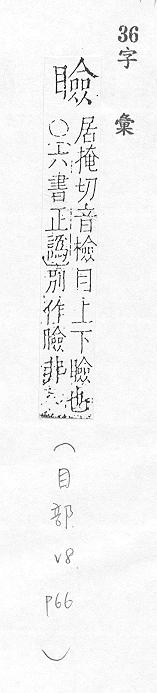 36字彙
瞼
居掩切音檢目上下瞼也
○六書正譌別作臉非
(目部 v8 p66)